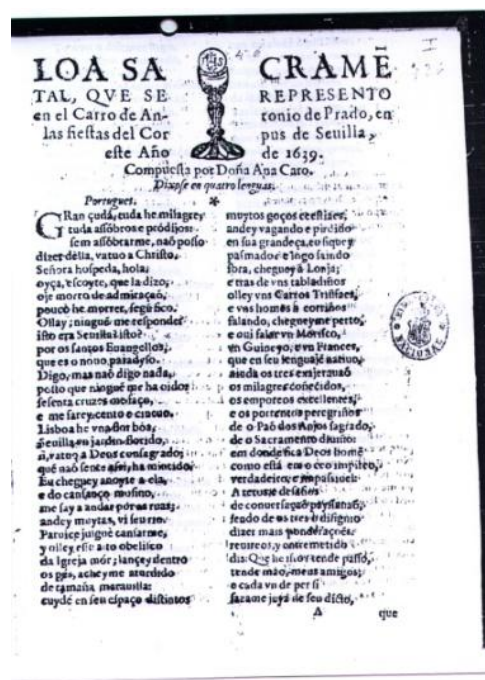 LOA SACRAMĒ
TAL, QVE SE REPRESENTO
en el Carro de Antonio de Prado, en
las fiestas del Corpus de Seuilla,
este Año de 1639.
Compuesta por Doña Ana Caro.
Dizese en quatro lenguas.
Portugues.
GRan çuda, tuda he milagres
tuda assōbros e pródijos:
sem assōbrarme, naõ posso
dizer della, vatuo a Christo,
Señora hospeda, hola,
oyça, escoyte, que la dizo,
oje morto de admiraçaõ,
pouco he morrer, segũ fico,
Ollay, ningué me responde?
isto era Seuilla? isto?
por os santos Euangellos,
que es o nouo paradyso.
Digo, mas naõ digo nada,
posto que ningué me ha oido,
sesenta cruzes
e me farey cento e cincuo,
Lisboa he vna flor bóa,
Seuilla en jardin florido,
a Deos consagrado,
què naõ sente assi, ha mintido,
Eu cheguey anoyte a ela,
e do cansanço mofino,
me say a andar por as ruas,
andey muytas, vi seu rio
Paroice juiguè cansarme,
y olley esse alto obelisco
da Igreja môr, lancey dentro
os pês, acheyme aturdido
de tamaña marauilla:
cuydè en seu espaço distintos
muytos goços
andey vagando e pirdido
en sua grandeça, eu fiquey
pasmado: e logo saindo
fora, cheguey à Lonja,
e tras de vns tabladiños
olley vns Carros Trifaes,
e vns homēs à corriños
falando, chegueyme perto,
e oui falar vn Morisco,
vn Guineyo, e vn Frances,
que en seu lenguaje natiuo,
ainda os tres
os milagres coñecidos,
os emporeos excellentes,
e os portentos peregriños
de o Paõ dos Anjos sagrado,
de o Sacramento diuino:
em donde fica Deos homē
como està em o ceo impireo,
verdadeiro, e impassiuel:
A
de conuersaçaõ
sendo de os tres o disignio
dizer mais ponderaçoēs,
e entremetido
dixe
tende maõ, meus amigos,
e cada vn de per si
farame juyz de seu dicto,
A
que